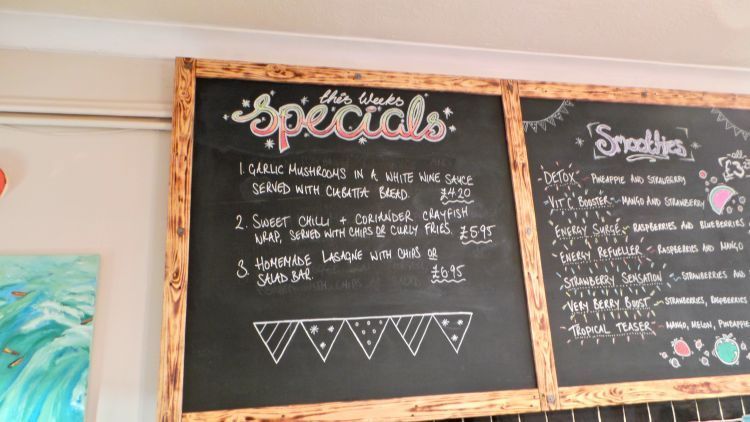 this weeks
Specials
1. GARLIC MUSHROOMS IN A WHITE WINE SAUCE
SERVED WITH CIABATTA BREAD. £4.20
2. SWEET CHILLI + CORIANDER CRAYFISH
WRAP, SERVED WITH CHIPS OR CURLY FRIES. £5.95
3. HOMEMADE LASAGNE WITH CHIPS OR
SALAD BAR. £6.95
Smoothies
-all-
DETOX - PINEAPPLE AND STRAWBERRY
VIT C BOOSTER - MANGO AND STRAWBERRY
ENERGY SURGE - RASPBERRIES AND BLUEBERRIES
ENERGY REFUELLER - RASPBERRIES AND MANGO
STRAWBERRY SENSATION - STRAWBERRIES AND
VERY BERRY BOOST - STRAWBERRIES, RASPBERRIES
TROPICAL TEASER - MANGO, MELON, PINEAPPLE